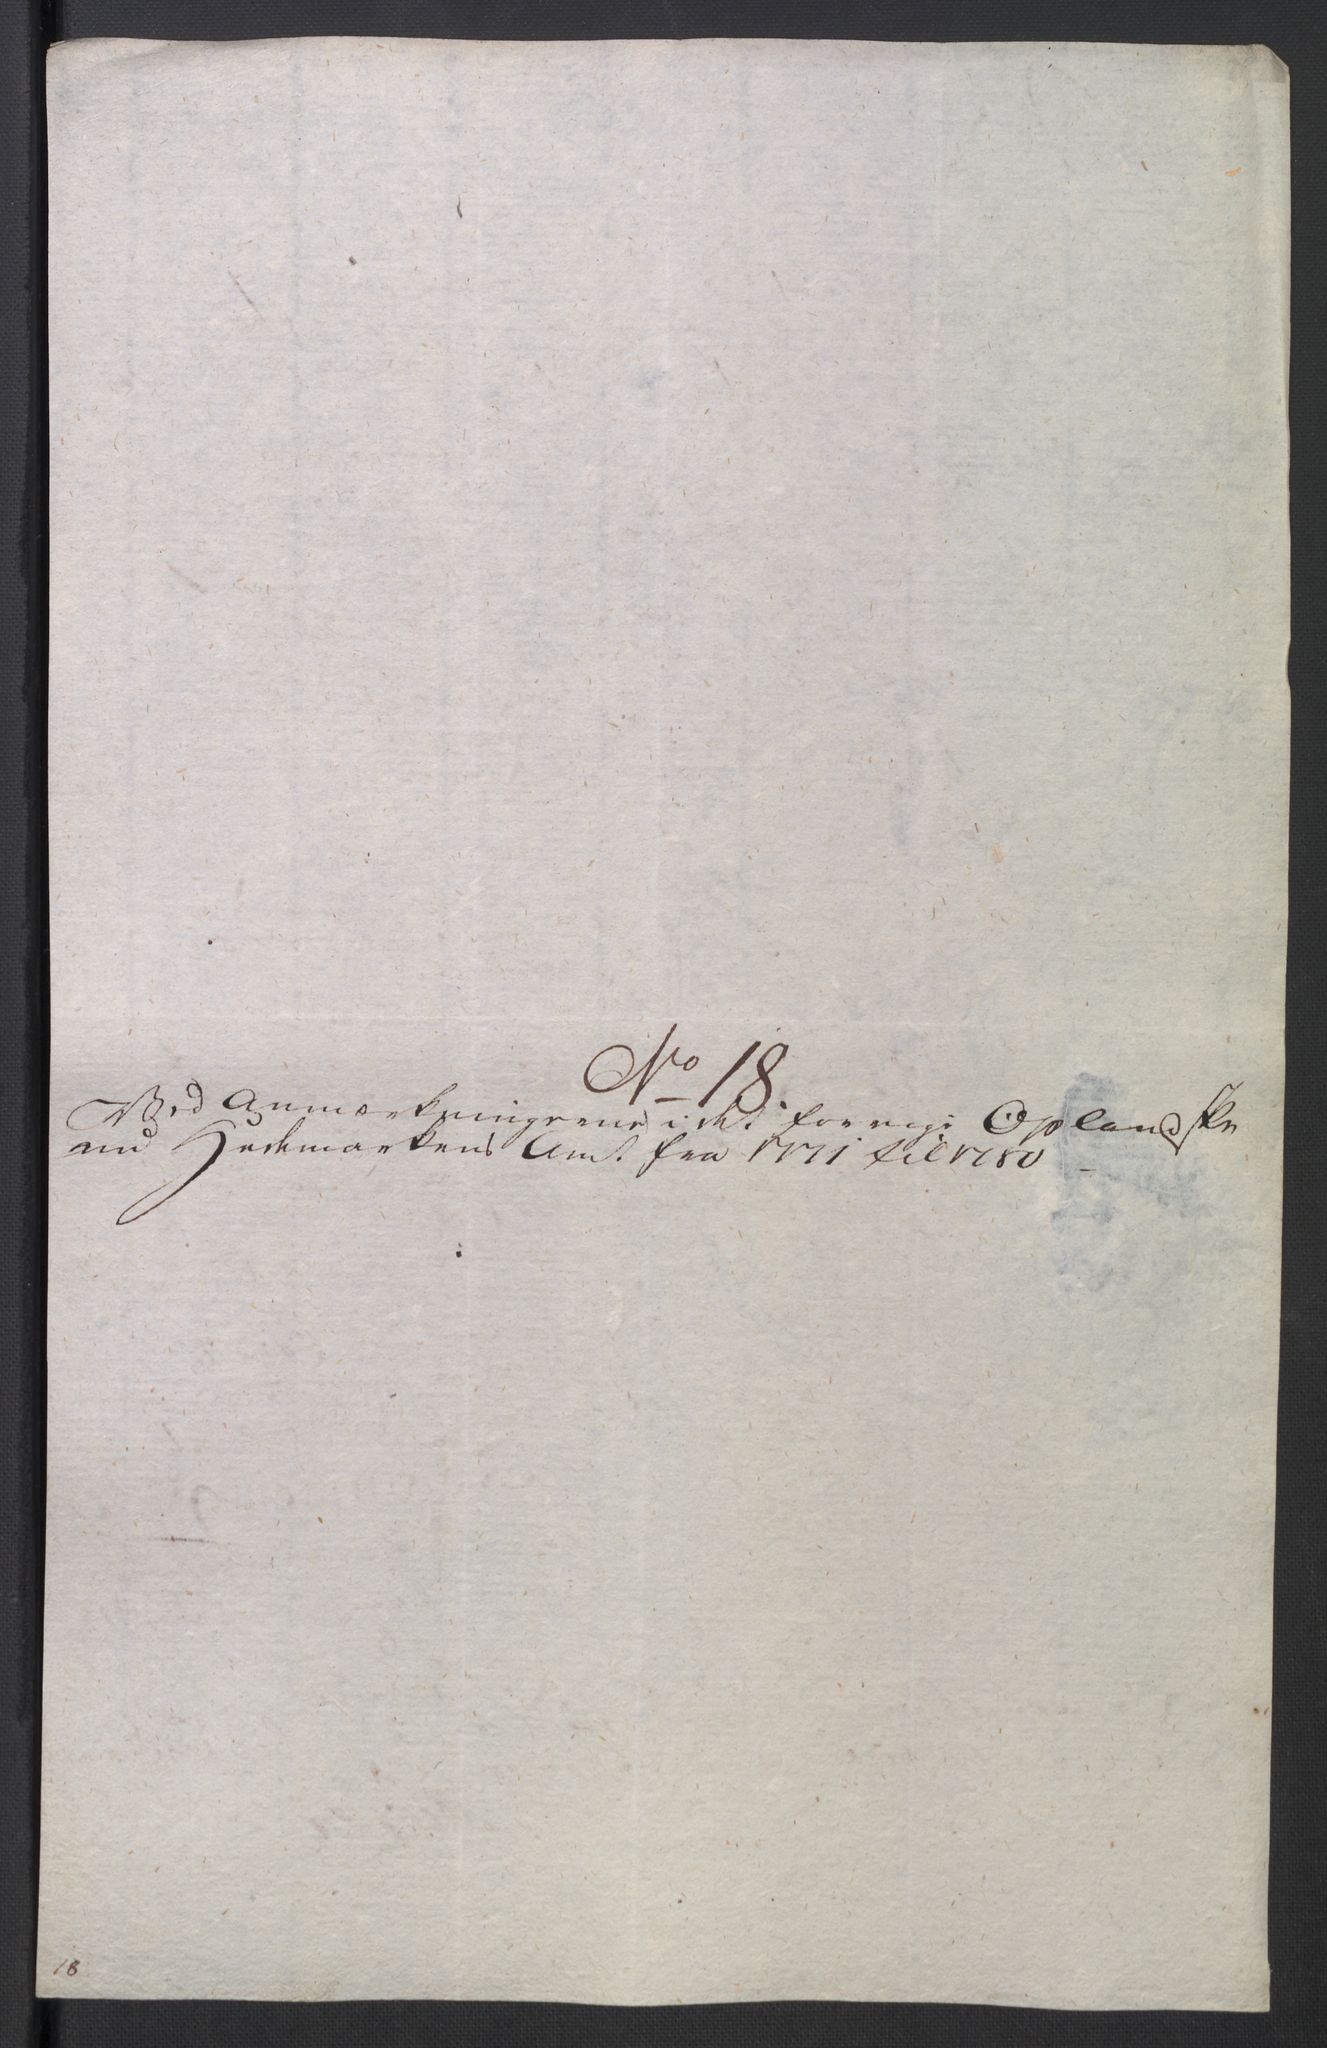 No 18.
Ved Anmærkningerne i det forrige Oplandske
nu Hedemarkens Amt fra 1771 til 1780
18